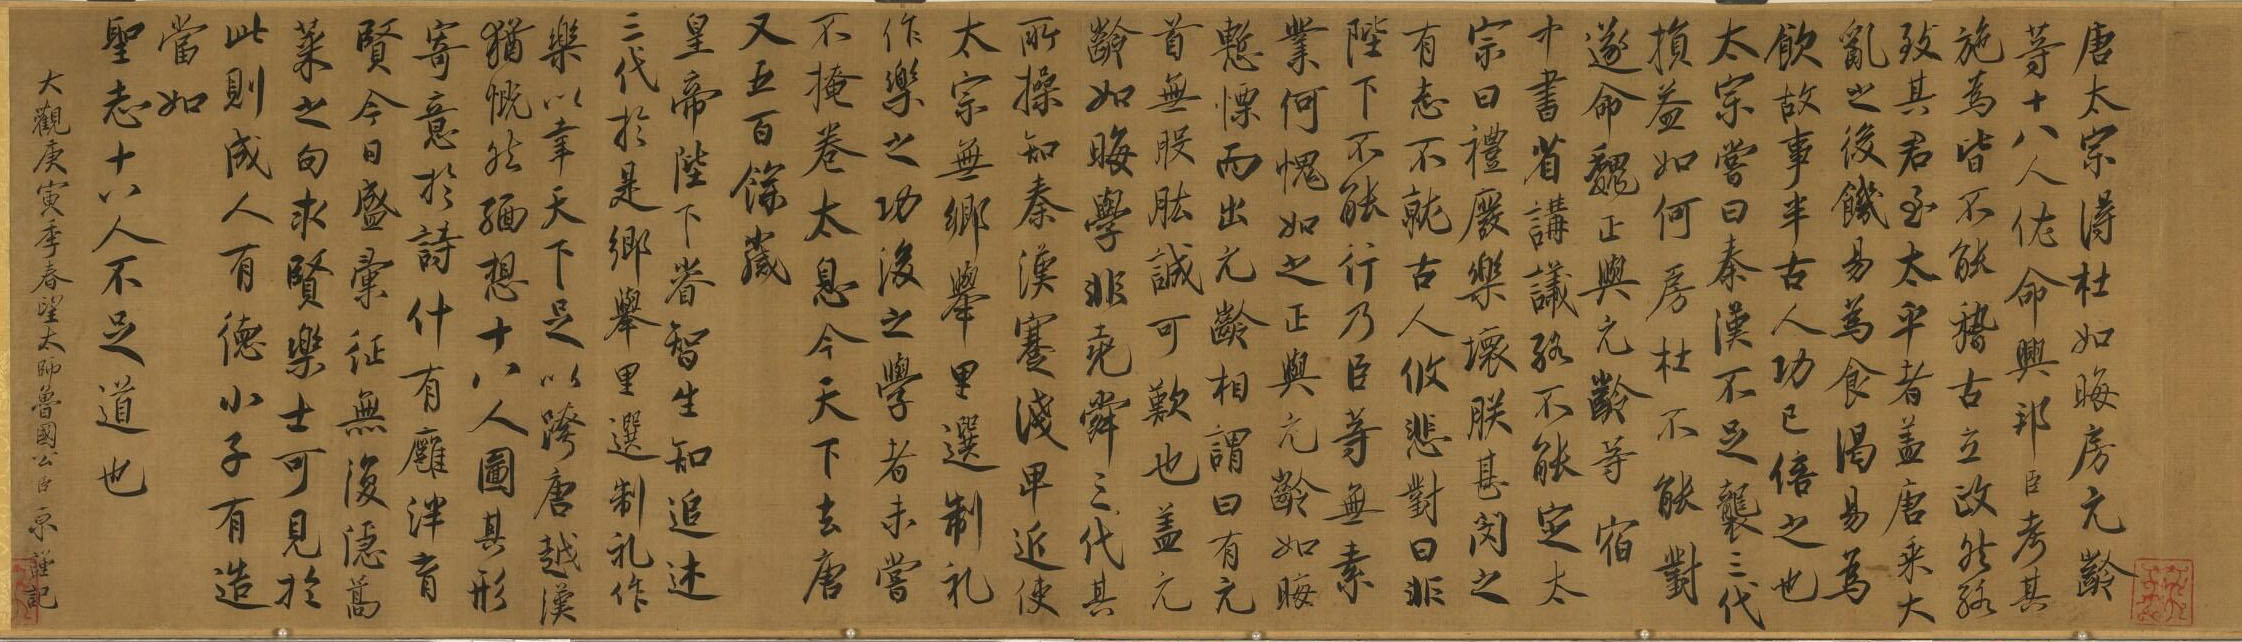 唐太宗得杜如晦房元齡
等十八人佐命興邦臣考其
施為皆不能稽古立政然能
致其君至太平者蓋唐乘大
亂之後饑易為食渴易為
飲故事半古人功已倍之也
太宗嘗曰秦漢不足襲三代
損益如何房杜不能對
遂命魏正與元齡等宿
中書省講議終不能定太
宗曰禮廢樂壞朕甚閔之
有志不就古人攸悲對曰非
陛下不能行乃臣等無素
業何愧如之正與元齡如晦
慙慄而出元齡相謂曰有元
首無股肱誠可歎也蓋元
齡如晦學非堯舜三代其
所操知秦漢蹇淺卑近使
太宗無鄉舉里選制礼
作樂之功後之學者未嘗
不掩卷太息今天下去唐
又五百餘歲
皇帝陛下睿智生知追述
三代於是鄉舉里選制礼作
樂以幸天下足以跨唐越漢
猶慨然緬想十八人圖其形
寄意於詩什有廱泮育
賢今日盛彙征無復隱蒿
萊之句求賢樂士可見於
此則成人有德小子有造
當如
聖志十八人不足道也
大觀庚寅季春望太師魯國公臣京謹記